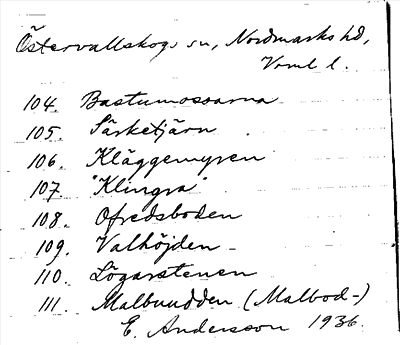 Östervallskogs sn, Nordmarks hd,
Vrml l.
104. Bastumossarna
105. Särketjärn
106. Kläggemyren
107. "Klingra"
108. Ofredsboden
109. Valhöjden
110. Lögarstenen
111. Malbuudden (Malbod-)
E. Andersson 1936.